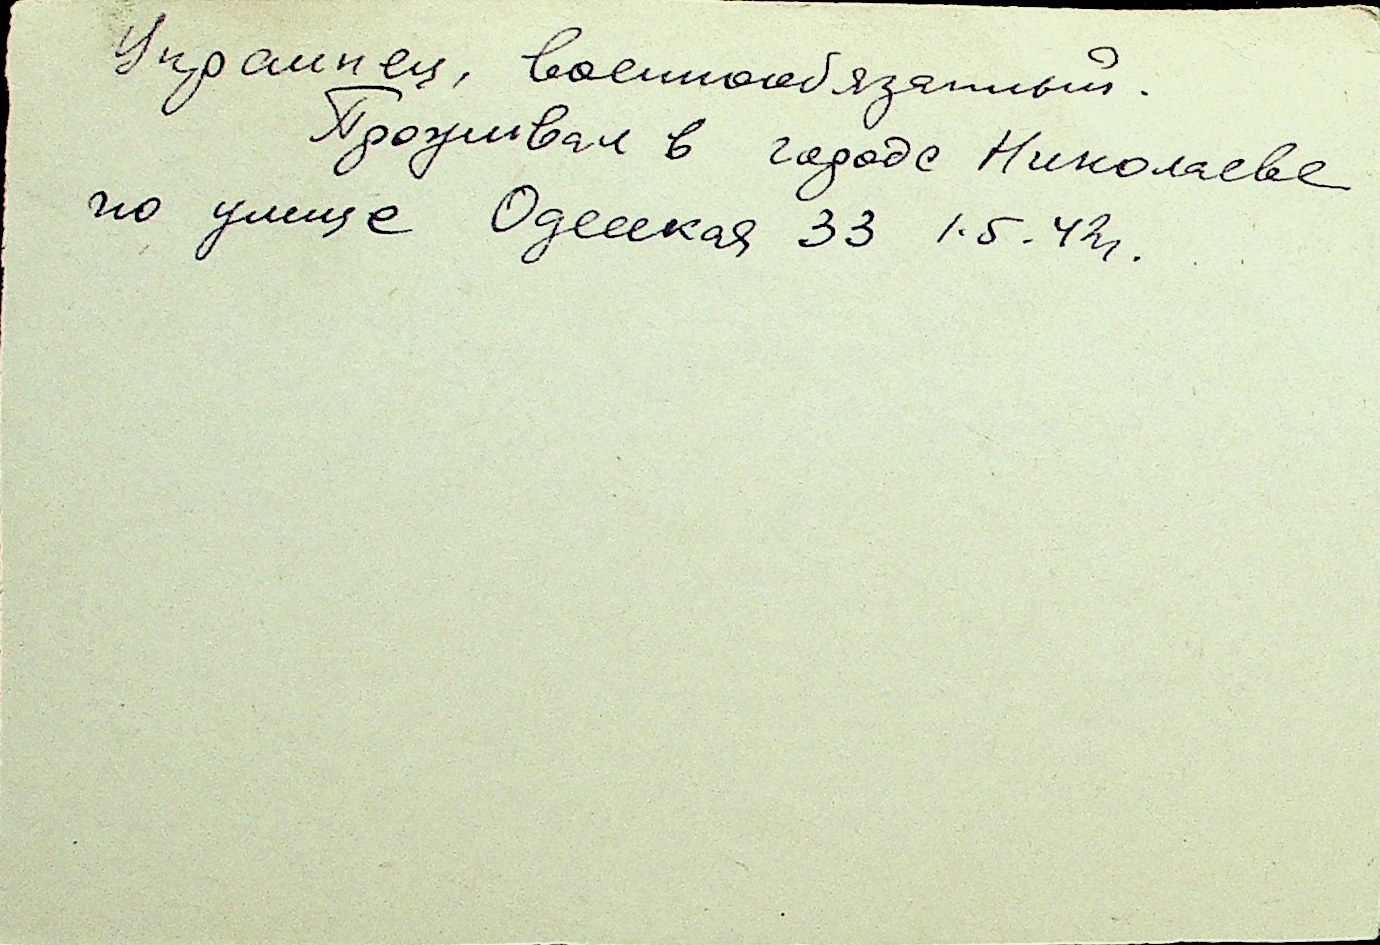 Украинец, военнообязанный.
Проживал в городе Николаеве
по улице Одесская 33 1.5.42г.